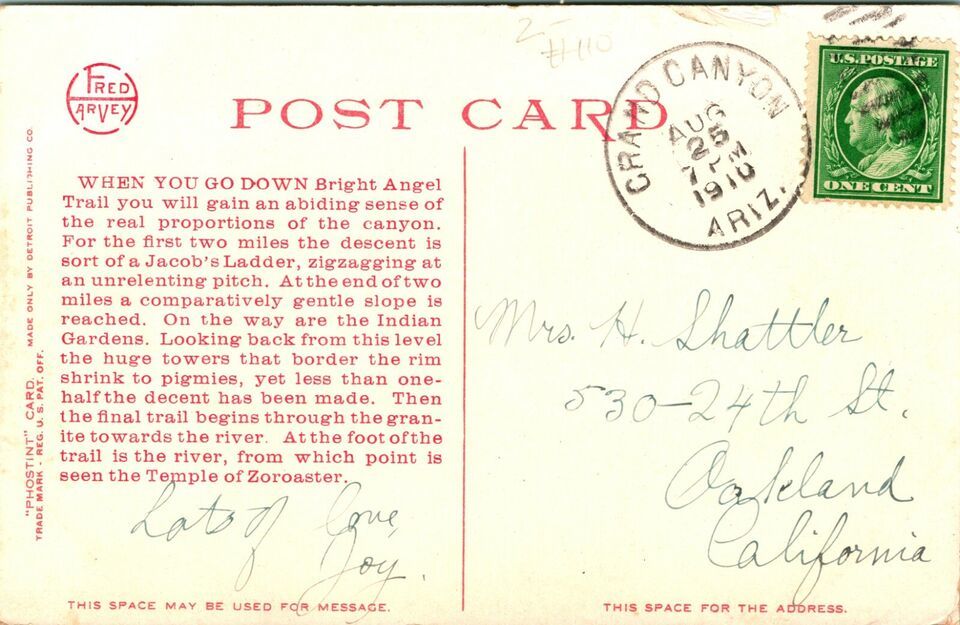 2-
#110
FRED
HARVEY
POST CARD
GRAND CANYON
AUG
25
7 PM
1910
ARIZ.
U.S. POSTAGE
ONE CENT
WHEN YOU GO DOWN Bright Angel
Trail you will gain an abiding sense of
the real proportions of the canyon.
For the first two miles the descent is
sort of a Jacob's Ladder, zigzagging at
an unrelenting pitch. At the end of two
miles a comparatively gentle slope is
reached. On the way are the Indian
Gardens. Looking back from this level
the huge towers that border the rim
shrink to pigmies, yet less than one-
half the decent has been made. Then
the final trail begins through the gran-
ite towards the river. At the foot of the
trail is the river, from which point is
seen the Temple of Zoroaster.
Lots of love,
Joy.
THIS SPACE MAY BE USED FOR MESSAGE.
"PHOSTINT" CARD. MADE ONLY BY DETROIT PUBLISHING CO.
TRADE MARK - REG. U. S. PAT. OFF.
Mrs. H. Shattler
530-24th St.
Oakland
California
THIS SPACE FOR THE ADDRESS.